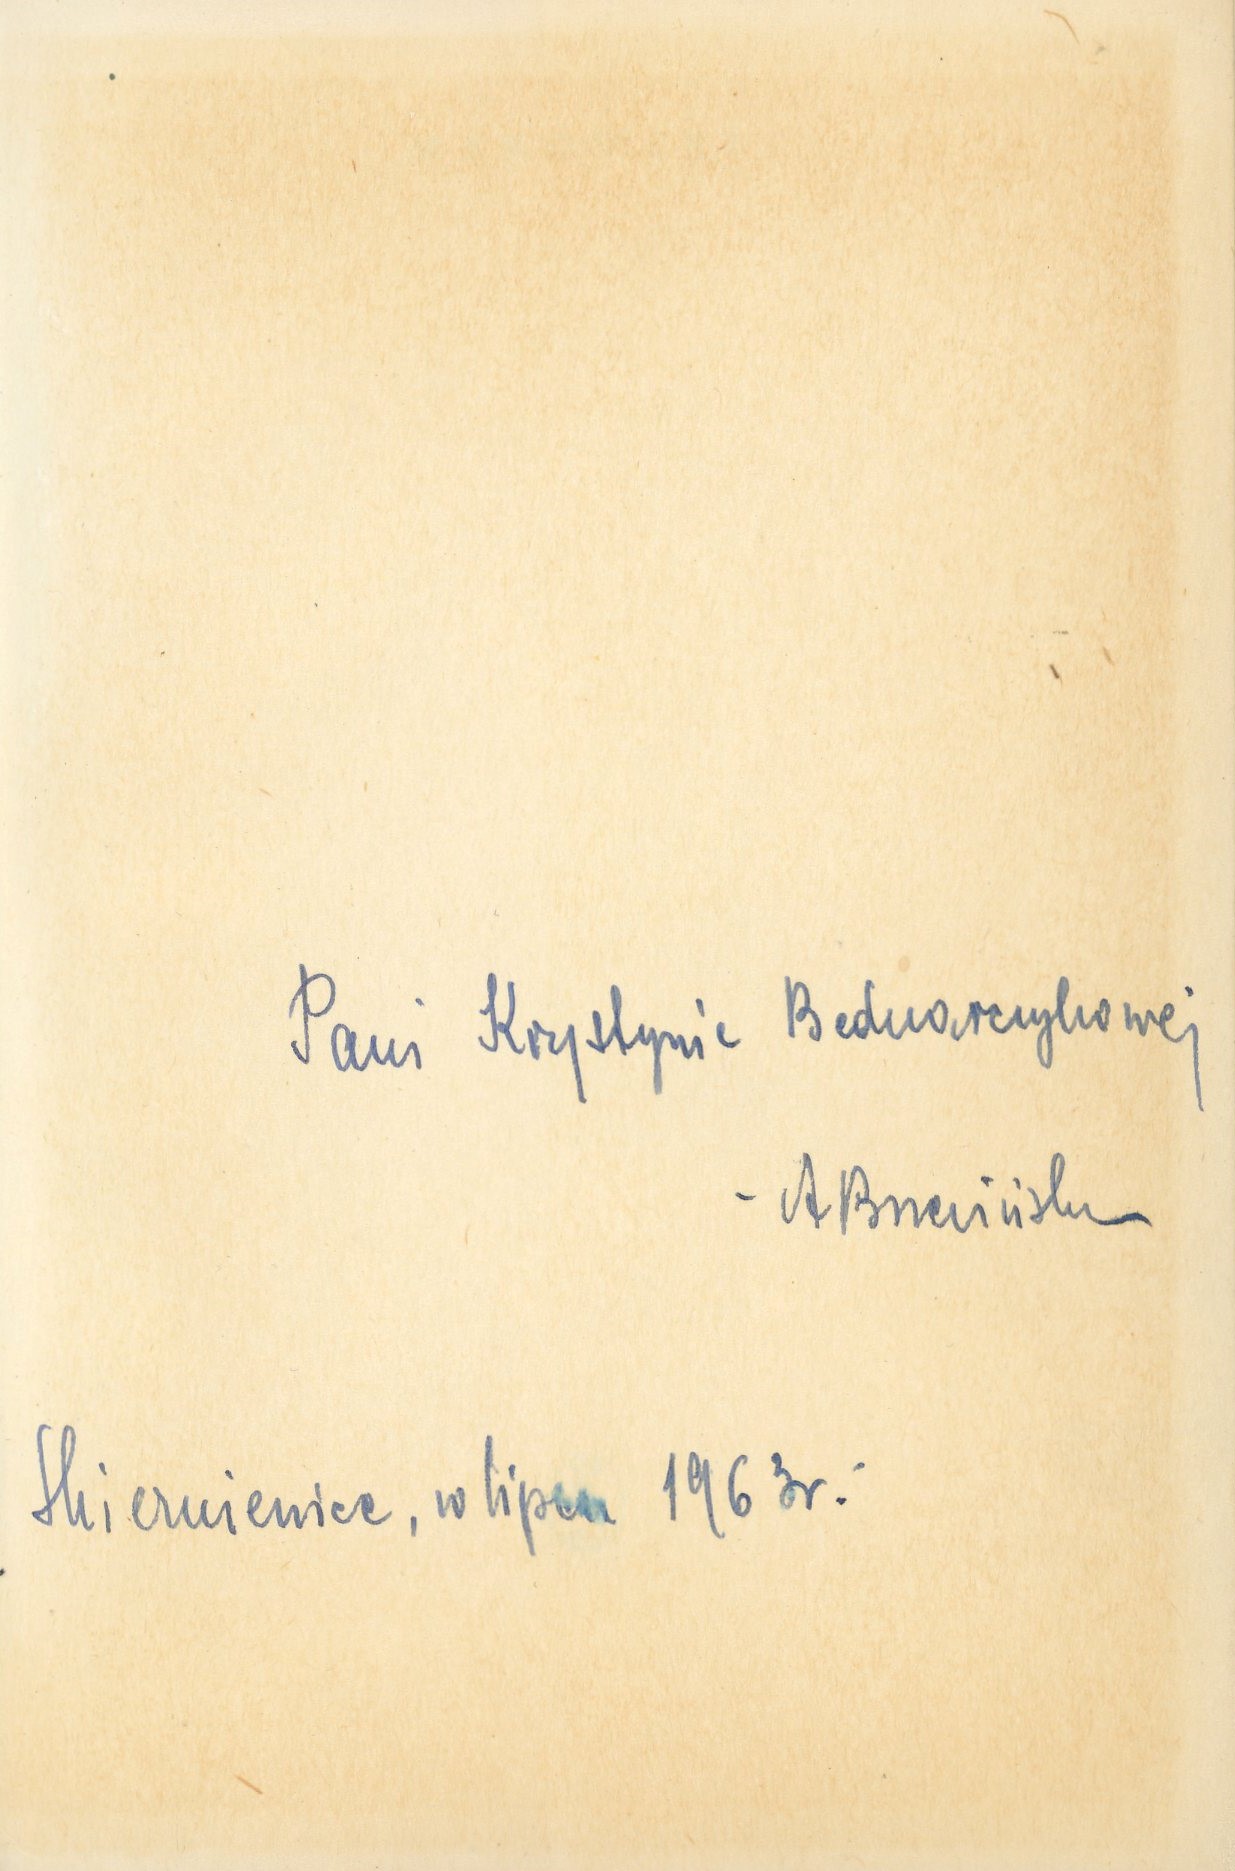 Pani Krystynie Bednarczykowej
- A
Skierniewice, w lipcu 1963r.